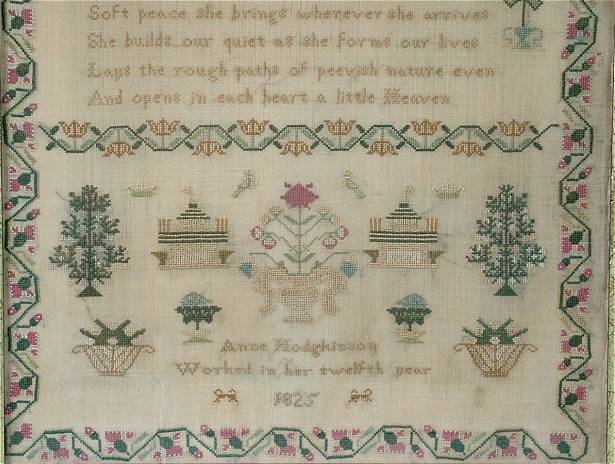 Soft peace she brings wherever she arrives
She builds our quiet as she forms our lives
Lays the rough paths of peevish nature even
And opens in each heart a little Heaven
Anne Hodgkinson
Worked in her twelfth year
1825